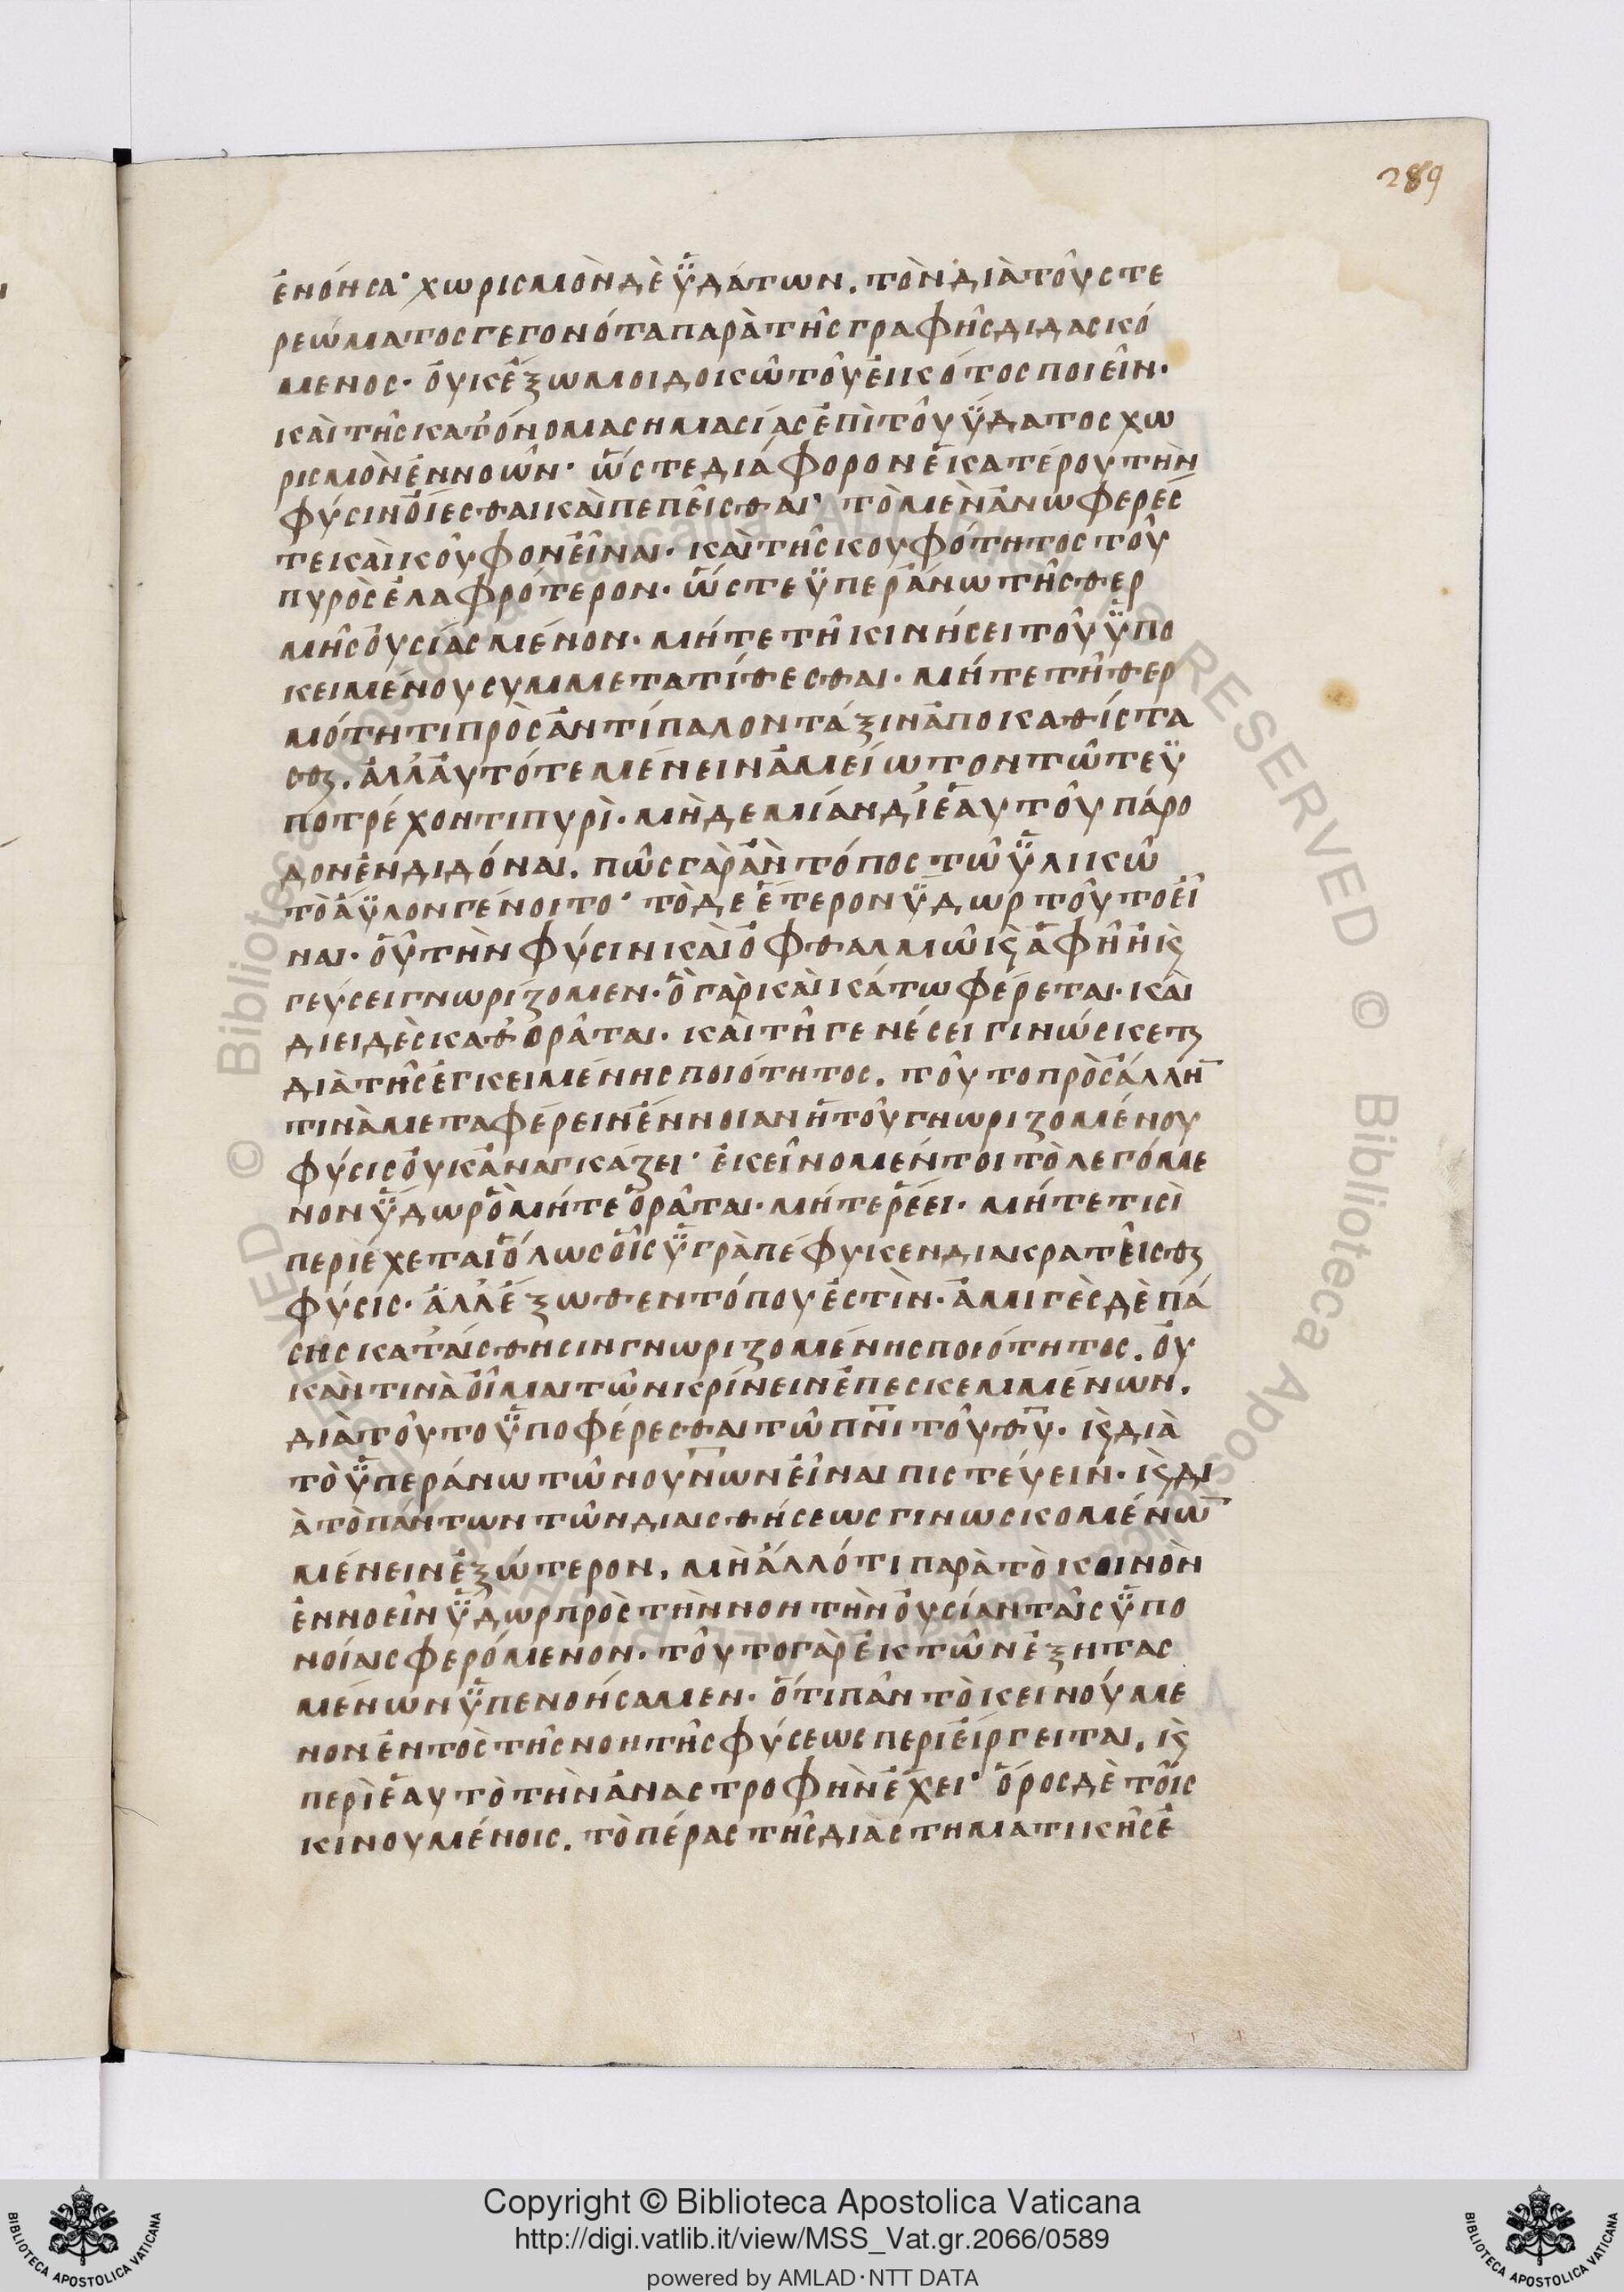 289
ἐνόησα· χωρισμὸν δὲ ὑδάτων. τὸν διὰ τοῦ στε
ρεώματος γεγονότα παρὰ τῆς γραφῆς διδασκό
μενος· οὐκ ἔξω μοι δοκῶ τοῦ εἰκότος ποιεῖν·
καὶ τῆς κατ' ὄνομα σημασίας ἐπὶ τοῦ ὕδατος χω
ρισμὸν ἐννοῶν· ὥστε διάφορον ἑκατέρου τὴν
φύσιν οἴεσθαι καὶ πεπεῖσθαι· τὸ μὲν ἀνωφερές
τε καὶ κοῦφον εἶναι· καὶ τῆς κουφότητος τοῦ
πυρὸς ἐλαφρότερον· ὥστε ὑπεράνω τῆς θερ
μῆς οὐσίας μένον· μήτε τῇ κινήσει τοῦ ὑπο
κειμένου συμμετατίθεσθαι· μήτε τῇ θερ
μότητι πρὸς ἀντίπαλον τάξιν ἀποκαθίστα
σθαι. ἀλλ' αὐτό τε μένειν ἀμείωτον τῷ τε ὑ
ποτρέχοντι πυρὶ· μηδεμίαν δι' ἑαυτοῦ πάρο
δον ἐνδιδόναι. πῶς γὰρ ἂν τόπος τῷ ὑλικῷ
τὸ ἄϋλον γένοιτο· τὸ δὲ ἕτερον ὕδωρ τοῦτο εἶ
ναι· οὗ τὴν φύσιν καὶ ὀφθαλμῷ κὶ ἁφῇ ἢ κὶ
γεύσει γνωρίζομεν· ὃ γὰρ καὶ κάτω φέρεται· καὶ
διειδὲς καθορᾶται· καὶ τῇ γενέσει γινώσκεται
διὰ τῆς ἐγκειμένης ποιότητος. τοῦτο πρὸς ἄλλην
τινὰ μεταφέρειν ἔννοιαν ἡ τοῦ γνωριζομένου
φύσις οὐκ ἀναγκάζει· ἐκεῖνο μέντοι τὸ λεγόμε
νον ὕδωρ ὃ μήτε ὁρᾶται· μήτε ῥέει· μήτε τισὶ
περιέχεται ὅλως οἷς ὑγρὰ πέφυκεν διακρατεῖσθαι
φύσις· ἀλλ' ἔξωθεν τόπου ἐστὶν· ἀμιγὲς δὲ πά
σης κατ' αἴσθησιν γνωριζομένης ποιότητος. οὐ
κ ἄν τινὰ οἶμαι τῶν κρίνειν ἐπεσκεμμένων.
διὰ τοῦτο ὑποφέρεσθαι τῷ πνι τοῦ θυ· κὶ διὰ
τὸ ὑπεράνω τῶν οὐνων εἶναι πιστεύειν· κὶ δι
ὰ τὸ πάντων τῶν δι' αἰσθήσεως γινωσκομένων
μένειν ἐξώτερον. μὴ ἄλλό τι παρὰ τὸ κοινὸν
ἐννοεῖν ὕδωρ πρὸς τὴν νοητὴν οὐσίαν ταῖς ὑπο
νοίαις φερόμενον· τοῦτο γὰρ ἐκ τῶν ἐξητας
μένων ὑπενοήσαμεν· ὅτι πᾶν τὸ κεινούμε
νον ἐντὸς τῆς νοητῆς φύσεως περιείργειται. κὶ
περὶ ἑαυτὸ τὴν ἀναστροφὴν ἔχει· ὅρος δὲ τοῖς
κινουμένοις. τὸ πέρας τῆς διαστηματικῆς ἐ
Copyright © Biblioteca Apostolica Vaticana
http://digi.vatlib.it/view/MSS_Vat.gr.2066/0589
powered by AMLAD·NTT DATA